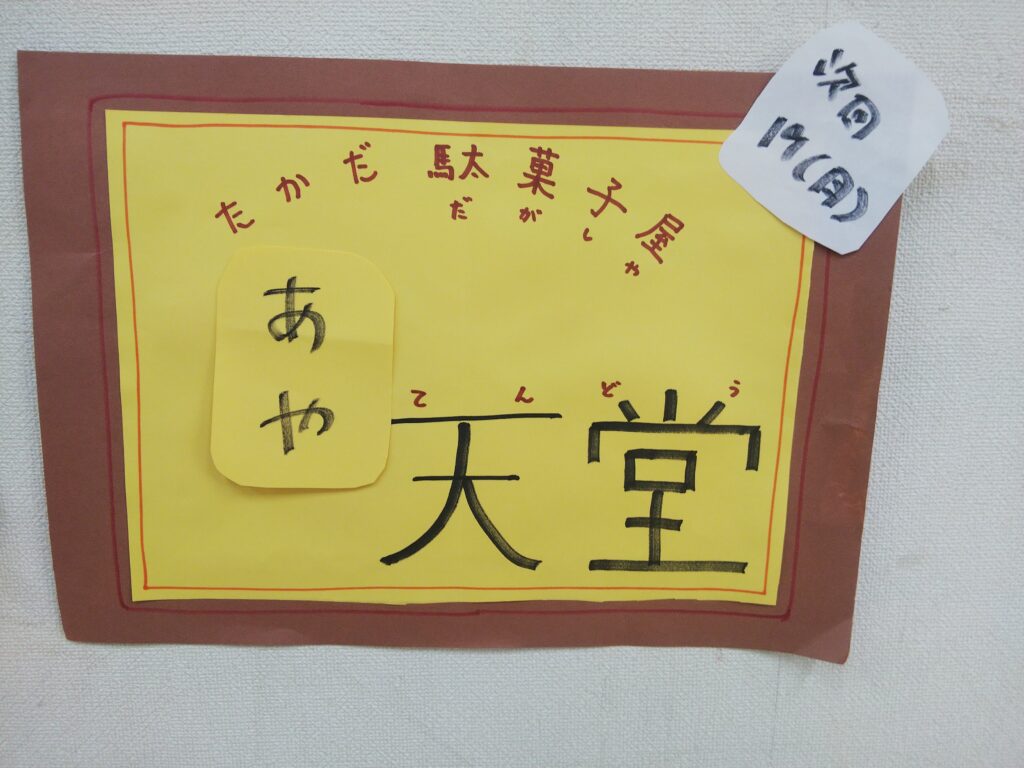 たかだ駄菓子屋
だがしや
あや
てんどう
天堂
次回
19(月)